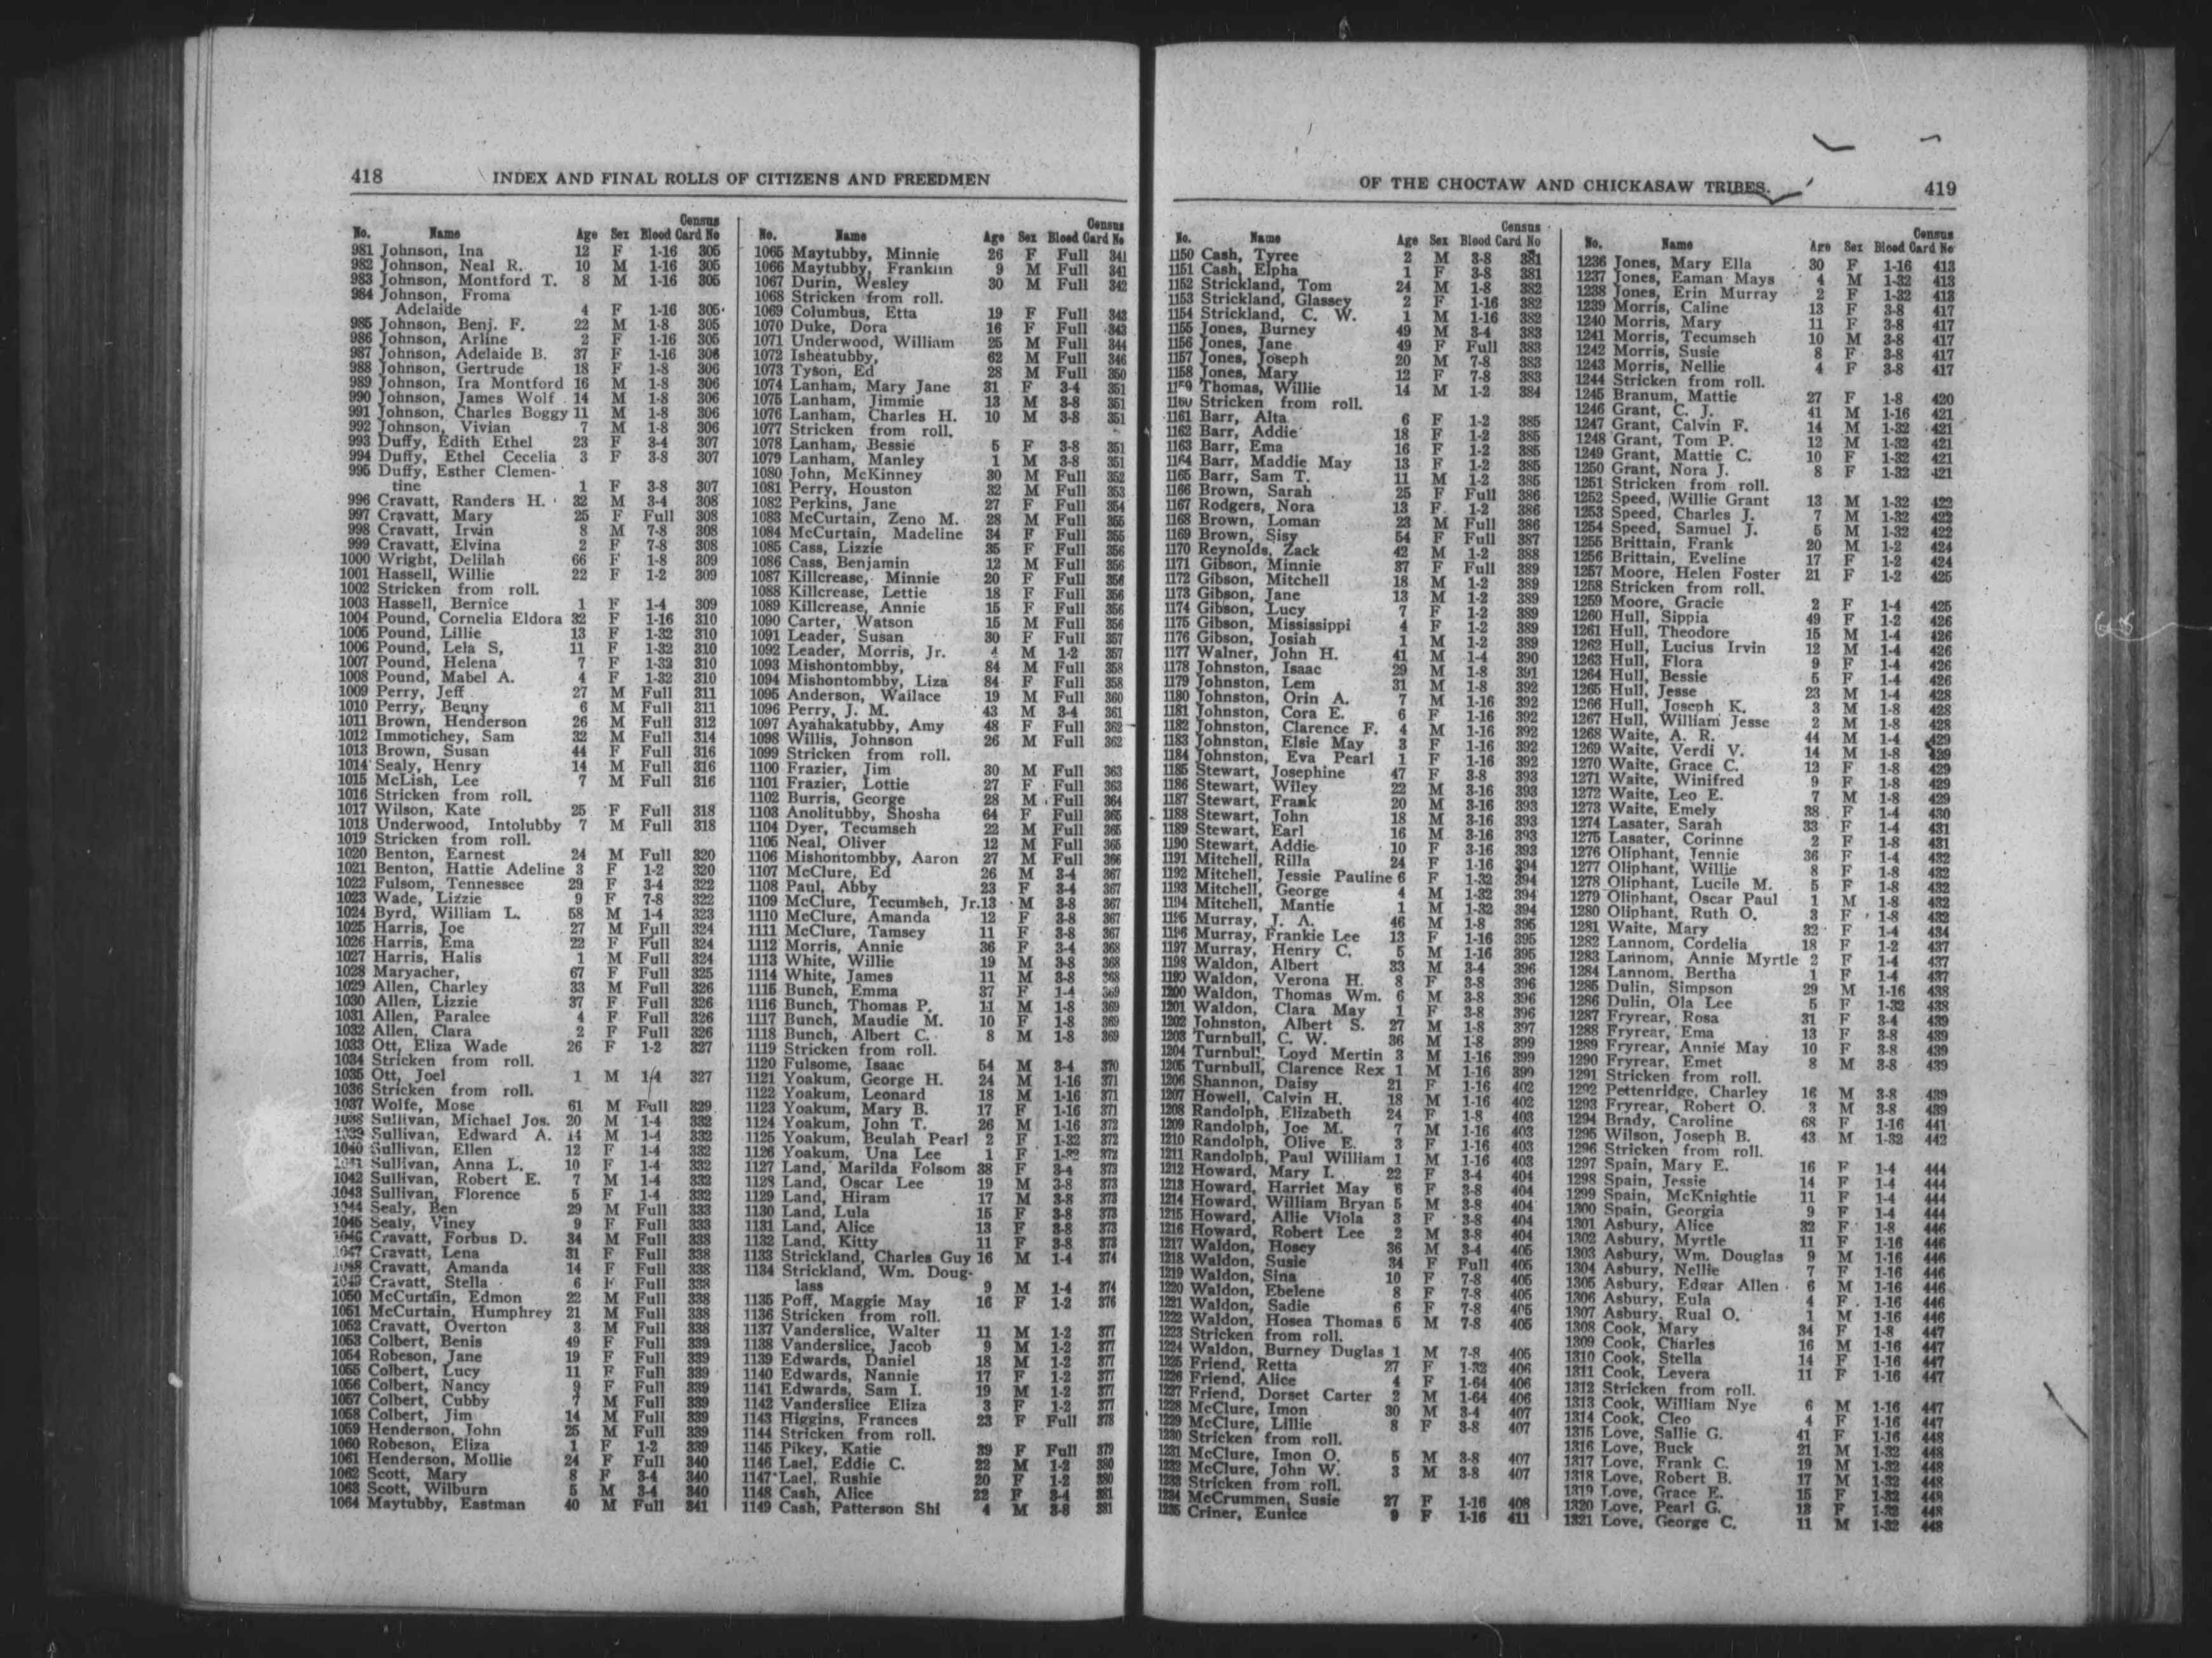 418 INDEX AND FINAL ROLLS OF CITIZENS AND FREEDMEN
No. Name Age Sex Blood Census Card No
981 Johnson, Ina 12 F 1-16 305
982 Johnson, Neal R. 10 M 1-16 305
983 Johnson, Montford T. 8 M 1-16 305
984 Johnson, Froma
Adelaide 4 F 1-16 305
985 Johnson, Benj. F. 22 M 1-8 305
986 Johnson, Arline 2 F 1-16 305
987 Johnson, Adelaide B. 37 F 1-16 306
988 Johnson, Gertrude 18 F 1-8 306
989 Johnson, Ira Montford 16 M 1-8 306
990 Johnson, James Wolf 14 M 1-8 306
991 Johnson, Charles Boggy 11 M 1-8 306
992 Johnson, Vivian 7 M 1-8 306
993 Duffy, Edith Ethel 23 F 3-4 307
994 Duffy, Ethel Cecelia 3 F 3-8 307
995 Duffy, Esther Clemen-
tine 1 F 3-8 307
996 Cravatt, Randers H. 32 M 3-4 308
997 Cravatt, Mary 25 F Full 308
998 Cravatt, Irvin 8 M 7-8 308
999 Cravatt, Elvina 2 F 7-8 308
1000 Wright, Delilah 66 F 1-8 309
1001 Hassell, Willie 22 F 1-2 309
1002 Stricken from roll.
1003 Hassell, Bernice 1 F 1-4 309
1004 Pound, Cornelia Eldora 32 F 1-16 310
1005 Pound, Lillie 13 F 1-32 310
1006 Pound, Lela S, 11 F 1-32 310
1007 Pound, Helena 7 F 1-32 310
1008 Pound, Mabel A. 4 F 1-32 310
1009 Perry, Jeff 27 M Full 311
1010 Perry, Benny 6 M Full 311
1011 Brown, Henderson 26 M Full 312
1012 Immotichey, Sam 32 M Full 314
1013 Brown, Susan 44 F Full 316
1014 Sealy, Henry 14 M Full 316
1015 McLish, Lee 7 M Full 316
1016 Stricken from roll.
1017 Wilson, Kate 25 F Full 318
1018 Underwood, Intolubby 7 M Full 318
1019 Stricken from roll.
1020 Benton, Earnest 24 M Full 320
1021 Benton, Hattie Adeline 3 F 1-2 320
1022 Fulsom, Tennessee 29 F 3-4 322
1023 Wade, Lizzie 9 F 7-8 322
1024 Byrd, William L. 58 M 1-4 323
1025 Harris, Joe 27 M Full 324
1026 Harris, Ema 22 F Full 324
1027 Harris, Halis 1 M Full 324
1028 Maryacher, 67 F Full 325
1029 Allen, Charley 33 M Full 326
1030 Allen, Lizzie 37 F Full 326
1031 Allen, Paralee 4 F Full 326
1032 Allen, Clara 2 F Full 326
1033 Ott, Eliza Wade 26 F 1-2 327
1034 Stricken from roll.
1035 Ott, Joel 1 M 1/4 327
1036 Stricken from roll.
1037 Wolfe, Mose 61 M Full 329
1038 Sullivan, Michael Jos. 20 M 1-4 332
1039 Sullivan, Edward A. 14 M 1-4 332
1040 Sullivan, Ellen 12 F 1-4 332
1041 Sullivan, Anna L. 10 F 1-4 332
1042 Sullivan, Robert E. 7 M 1-4 332
1043 Sullivan, Florence 5 F 1-4 332
1044 Sealy, Ben 29 M Full 333
1045 Sealy, Viney 9 F Full 333
1046 Cravatt, Forbus D. 34 M Full 338
1047 Cravatt, Lena 31 F Full 338
1048 Cravatt, Amanda 14 F Full 338
1049 Cravatt, Stella 6 F Full 338
1050 McCurtain, Edmon 22 M Full 338
1051 McCurtain, Humphrey 21 M Full 338
1052 Cravatt, Overton 3 M Full 338
1053 Colbert, Benis 49 F Full 339
1054 Robeson, Jane 19 F Full 339
1055 Colbert, Lucy 11 F Full 339
1056 Colbert, Nancy 9 F Full 339
1057 Colbert, Cubby 7 M Full 339
1058 Colbert, Jim 14 M Full 339
1059 Henderson, John 25 M Full 339
1060 Robeson, Eliza 1 F 1-2 339
1061 Henderson, Mollie 24 F Full 340
1062 Scott, Mary 8 F 3-4 340
1063 Scott, Wilburn 5 M 3-4 340
1064 Maytubby, Eastman 40 M Full 341
No. Name Age Sex Blood Census Card No
1065 Maytubby, Minnie 26 F Full 341
1066 Maytubby, Franklin 9 M Full 341
1067 Durin, Wesley 30 M Full 342
1068 Stricken from roll.
1069 Columbus, Etta 19 F Full 343
1070 Duke, Dora 16 F Full 343
1071 Underwood, William 25 M Full 344
1072 Isheatubby, 62 M Full 346
1073 Tyson, Ed 28 M Full 350
1074 Lanham, Mary Jane 31 F 3-4 351
1075 Lanham, Jimmie 13 M 3-8 351
1076 Lanham, Charles H. 10 M 3-8 351
1077 Stricken from roll.
1078 Lanham, Bessie 5 F 3-8 351
1079 Lanham, Manley 1 M 3-8 351
1080 John, McKinney 30 M Full 352
1081 Perry, Houston 32 M Full 353
1082 Perkins, Jane 27 F Full 354
1083 McCurtain, Zeno M. 28 M Full 355
1084 McCurtain, Madeline 34 F Full 355
1085 Cass, Lizzie 35 F Full 356
1086 Cass, Benjamin 12 M Full 356
1087 Killcrease, Minnie 20 F Full 356
1088 Killcrease, Lettie 18 F Full 356
1089 Killcrease, Annie 15 F Full 356
1090 Carter, Watson 15 M Full 356
1091 Leader, Susan 30 F Full 357
1092 Leader, Morris, Jr. 4 M 1-2 357
1093 Mishontombby, 84 M Full 358
1094 Mishontombby, Liza 84 F Full 358
1095 Anderson, Wallace 19 M Full 360
1096 Perry, J. M. 43 M 3-4 361
1097 Ayahakatubby, Amy 48 F Full 362
1098 Willis, Johnson 26 M Full 362
1099 Stricken from roll.
1100 Frazier, Jim 30 M Full 363
1101 Frazier, Lottie 27 F Full 363
1102 Burris, George 28 M Full 364
1103 Anolitubby, Shosha 64 F Full 365
1104 Dyer, Tecumseh 22 M Full 365
1105 Neal, Oliver 12 M Full 365
1106 Mishontombby, Aaron 27 M Full 366
1107 McClure, Ed 26 M 3-4 367
1108 Paul, Abby 23 F 3-4 367
1109 McClure, Tecumseh, Jr. 13 M 3-8 367
1110 McClure, Amanda 12 F 3-8 367
1111 McClure, Tamsey 11 F 3-8 367
1112 Morris, Annie 36 F 3-4 368
1113 White, Willie 19 M 3-8 368
1114 White, James 11 M 3-8 368
1115 Bunch, Emma 37 F 1-4 369
1116 Bunch, Thomas P. 11 M 1-8 369
1117 Bunch, Maudie M. 10 F 1-8 369
1118 Bunch, Albert C. 8 M 1-8 369
1119 Stricken from roll.
1120 Fulsome, Isaac 54 M 3-4 370
1121 Yoakum, George H. 24 M 1-16 371
1122 Yoakum, Leonard 18 M 1-16 371
1123 Yoakum, Mary B. 17 F 1-16 371
1124 Yoakum, John T. 26 M 1-16 372
1125 Yoakum, Beulah Pearl 2 F 1-32 372
1126 Yoakum, Una Lee 1 F 1-32 372
1127 Land, Marilda Folsom 38 F 3-4 373
1128 Land, Oscar Lee 19 M 3-8 373
1129 Land, Hiram 17 M 3-8 373
1130 Land, Lula 15 F 3-8 373
1131 Land, Alice 13 F 3-8 373
1132 Land, Kitty 11 F 3-8 373
1133 Strickland, Charles Guy 16 M 1-4 374
1134 Strickland, Wm. Doug-
lass 9 M 1-4 374
1135 Poff, Maggie May 16 F 1-2 376
1136 Stricken from roll.
1137 Vanderslice, Walter 11 M 1-2 377
1138 Vanderslice, Jacob 9 M 1-2 377
1139 Edwards, Daniel 18 M 1-2 377
1140 Edwards, Nannie 17 F 1-2 377
1141 Edwards, Sam I. 19 M 1-2 377
1142 Vanderslice Eliza 3 F 1-2 377
1143 Higgins, Frances 23 F Full 378
1144 Stricken from roll.
1145 Pikey, Katie 39 F Full 379
1146 Lael, Eddie C. 22 M 1-2 380
1147 Lael, Rushie 20 F 1-2 380
1148 Cash, Alice 22 F 3-4 381
1149 Cash, Patterson Shi 4 M 3-8 381
OF THE CHOCTAW AND CHICKASAW TRIBES. 419
No. Name Age Sex Blood Census Card No
1150 Cash, Tyree 2 M 3-8 381
1151 Cash, Elpha 1 F 3-8 381
1152 Strickland, Tom 24 M 1-8 382
1153 Strickland, Glassey 2 F 1-16 382
1154 Strickland, C. W. 1 M 1-16 382
1155 Jones, Burney 49 M 3-4 383
1156 Jones, Jane 49 F Full 383
1157 Jones, Joseph 20 M 7-8 383
1158 Jones, Mary 12 F 7-8 383
1159 Thomas, Willie 14 M 1-2 384
1160 Stricken from roll.
1161 Barr, Alta 6 F 1-2 385
1162 Barr, Addie 18 F 1-2 385
1163 Barr, Ema 16 F 1-2 385
1164 Barr, Maddie May 13 F 1-2 385
1165 Barr, Sam T. 11 M 1-2 385
1166 Brown, Sarah 25 F Full 386
1167 Rodgers, Nora 13 F 1-2 386
1168 Brown, Loman 23 M Full 386
1169 Brown, Sisy 54 F Full 387
1170 Reynolds, Zack 42 M 1-2 388
1171 Gibson, Minnie 37 F Full 389
1172 Gibson, Mitchell 18 M 1-2 389
1173 Gibson, Jane 13 M 1-2 389
1174 Gibson, Lucy 7 F 1-2 389
1175 Gibson, Mississippi 4 F 1-2 389
1176 Gibson, Josiah 1 M 1-2 389
1177 Walner, John H. 41 M 1-4 390
1178 Johnston, Isaac 29 M 1-8 391
1179 Johnston, Lem 31 M 1-8 392
1180 Johnston, Orin A. 7 M 1-16 392
1181 Johnston, Cora E. 6 F 1-16 392
1182 Johnston, Clarence F. 4 M 1-16 392
1183 Johnston, Elsie May 3 F 1-16 392
1184 Johnston, Eva Pearl 1 F 1-16 392
1185 Stewart, Josephine 47 F 3-8 393
1186 Stewart, Wiley 22 M 3-16 393
1187 Stewart, Frank 20 M 3-16 393
1188 Stewart, John 18 M 3-16 393
1189 Stewart, Earl 16 M 3-16 393
1190 Stewart, Addie 10 F 3-16 393
1191 Mitchell, Rilla 24 F 1-16 394
1192 Mitchell, Jessie Pauline 6 F 1-32 394
1193 Mitchell, George 4 M 1-32 394
1194 Mitchell, Mantie 1 M 1-32 394
1195 Murray, J. A. 46 M 1-8 395
1196 Murray, Frankie Lee 13 F 1-16 395
1197 Murray, Henry C. 5 M 1-16 395
1198 Waldon, Albert 33 M 3-4 396
1199 Waldon, Verona H. 8 F 3-8 396
1200 Waldon, Thomas Wm. 6 M 3-8 396
1201 Waldon, Clara May 1 F 3-8 396
1202 Johnston, Albert S. 27 M 1-8 397
1203 Turnbull, C. W. 36 M 1-8 399
1204 Turnbull, Loyd Mertin 3 M 1-16 399
1205 Turnbull, Clarence Rex 1 M 1-16 399
1206 Shannon, Daisy 21 F 1-16 402
1207 Howell, Calvin H. 18 M 1-16 402
1208 Randolph, Elizabeth 24 F 1-8 403
1209 Randolph, Joe M. 7 M 1-16 403
1210 Randolph, Olive E. 3 F 1-16 403
1211 Randolph, Paul William 1 M 1-16 403
1212 Howard, Mary I. 22 F 3-4 404
1213 Howard, Harriet May 6 F 3-8 404
1214 Howard, William Bryan 5 M 3-8 404
1215 Howard, Allie Viola 3 F 3-8 404
1216 Howard, Robert Lee 2 M 3-8 404
1217 Waldon, Hosey 36 M 3-4 405
1218 Waldon, Susie 34 F Full 405
1219 Waldon, Sina 10 F 7-8 405
1220 Waldon, Ebelene 8 F 7-8 405
1221 Waldon, Sadie 6 F 7-8 405
1222 Waldon, Hosea Thomas 5 M 7-8 405
1223 Stricken from roll.
1224 Waldon, Burney Duglas 1 M 7-8 405
1225 Friend, Retta 27 F 1-32 406
1226 Friend, Alice 4 F 1-64 406
1227 Friend, Dorset Carter 2 M 1-64 406
1228 McClure, Imon 30 M 3-4 407
1229 McClure, Lillie 8 F 3-8 407
1230 Stricken from roll.
1231 McClure, Imon O. 5 M 3-8 407
1232 McClure, John W. 3 M 3-8 407
1233 Stricken from roll.
1234 McCrummen, Susie 27 F 1-16 408
1235 Criner, Eunice 9 F 1-16 411
No. Name Age Sex Blood Census Card No
1236 Jones, Mary Ella 30 F 1-16 413
1237 Jones, Eaman Mays 4 M 1-32 413
1238 Jones, Erin Murray 2 F 1-32 413
1239 Morris, Caline 13 F 3-8 417
1240 Morris, Mary 11 F 3-8 417
1241 Morris, Tecumseh 10 M 3-8 417
1242 Morris, Susie 8 F 3-8 417
1243 Morris, Nellie 4 F 3-8 417
1244 Stricken from roll.
1245 Branum, Mattie 27 F 1-8 420
1246 Grant, C. J. 41 M 1-16 421
1247 Grant, Calvin F. 14 M 1-32 421
1248 Grant, Tom P. 12 M 1-32 421
1249 Grant, Mattie C. 10 F 1-32 421
1250 Grant, Nora J. 8 F 1-32 421
1251 Stricken from roll.
1252 Speed, Willie Grant 13 M 1-32 422
1253 Speed, Charles J. 7 M 1-32 422
1254 Speed, Samuel J. 5 M 1-32 422
1255 Brittain, Frank 20 M 1-2 424
1256 Brittain, Eveline 17 F 1-2 424
1257 Moore, Helen Foster 21 F 1-2 425
1258 Stricken from roll.
1259 Moore, Gracie 2 F 1-4 425
1260 Hull, Sippia 49 F 1-2 426
1261 Hull, Theodore 15 M 1-4 426
1262 Hull, Lucius Irvin 12 M 1-4 426
1263 Hull, Flora 9 F 1-4 426
1264 Hull, Bessie 5 F 1-4 426
1265 Hull, Jesse 23 M 1-4 428
1266 Hull, Joseph K. 3 M 1-8 428
1267 Hull, William Jesse 2 M 1-8 428
1268 Waite, A. R. 44 M 1-4 429
1269 Waite, Verdi V. 14 M 1-8 429
1270 Waite, Grace C. 12 F 1-8 429
1271 Waite, Winifred 9 F 1-8 429
1272 Waite, Leo E. 7 M 1-8 429
1273 Waite, Emely 38 F 1-4 430
1274 Lasater, Sarah 33 F 1-4 431
1275 Lasater, Corinne 2 F 1-8 431
1276 Oliphant, Jennie 36 F 1-4 432
1277 Oliphant, Willie 8 F 1-8 432
1278 Oliphant, Lucile M. 5 F 1-8 432
1279 Oliphant, Oscar Paul 1 M 1-8 432
1280 Oliphant, Ruth O. 3 F 1-8 432
1281 Waite, Mary 32 F 1-4 434
1282 Lannom, Cordelia 18 F 1-2 437
1283 Lannom, Annie Myrtle 2 F 1-4 437
1284 Lannom, Bertha 1 F 1-4 437
1285 Dulin, Simpson 29 M 1-16 438
1286 Dulin, Ola Lee 5 F 1-32 438
1287 Fryrear, Rosa 31 F 3-4 439
1288 Fryrear, Ema 13 F 3-8 439
1289 Fryrear, Annie May 10 F 3-8 439
1290 Fryrear, Emet 8 M 3-8 439
1291 Stricken from roll.
1292 Pettenridge, Charley 16 M 3-8 439
1293 Fryrear, Robert O. 3 M 3-8 439
1294 Brady, Caroline 68 F 1-16 441
1295 Wilson, Joseph B. 43 M 1-32 442
1296 Stricken from roll.
1297 Spain, Mary E. 16 F 1-4 444
1298 Spain, Jessie 14 F 1-4 444
1299 Spain, McKnightie 11 F 1-4 444
1300 Spain, Georgia 9 F 1-4 444
1301 Asbury, Alice 32 F 1-8 446
1302 Asbury, Myrtle 11 F 1-16 446
1303 Asbury, Wm. Douglas 9 M 1-16 446
1304 Asbury, Nellie 7 F 1-16 446
1305 Asbury, Edgar Allen 6 M 1-16 446
1306 Asbury, Eula 4 F 1-16 446
1307 Asbury, Rual O. 1 M 1-16 446
1308 Cook, Mary 34 F 1-8 447
1309 Cook, Charles 16 M 1-16 447
1310 Cook, Stella 14 F 1-16 447
1311 Cook, Levera 11 F 1-16 447
1312 Stricken from roll.
1313 Cook, William Nye 6 M 1-16 447
1314 Cook, Cleo 4 F 1-16 447
1315 Love, Sallie G. 41 F 1-16 448
1316 Love, Buck 21 M 1-32 448
1317 Love, Frank C. 19 M 1-32 448
1318 Love, Robert B. 17 M 1-32 448
1319 Love, Grace E. 15 F 1-32 448
1320 Love, Pearl G. 13 F 1-32 448
1321 Love, George C. 11 M 1-32 448